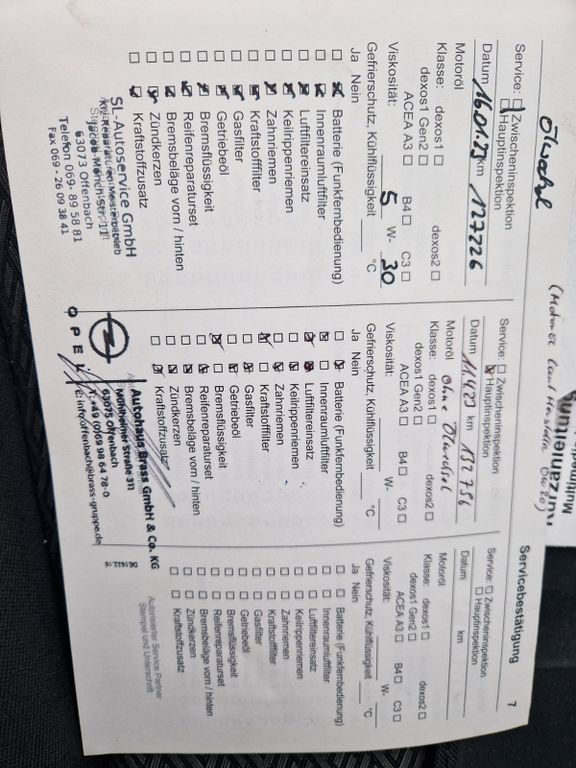 Servicebestätigung 7
Ölwechsel
Service: Zwischeninspektion
Hauptinspektion
Datum 16.01.23 km 127226
Motoröl
Klasse: dexos1 dexos2
dexos1 Gen2
ACEA A3 B4 C3
Viskosität: 5 W- 30
Gefrierschutz, Kühlflüssigkeit °C
Ja Nein
Batterie (Funkfernbedienung)
Innenraumluftfilter
Luftfiltereinsatz
Keilrippenriemen
Zahnriemen
Kraftstofffilter
Gasfilter
Getriebeöl
Bremsflüssigkeit
Reifenreparaturset
Bremsbeläge vorn / hinten
Zündkerzen
Kraftstoffzusatz
SL-Autoservice GmbH
Kfz-Reparaturen-Meisterbetrieb
Jacob-Mönch-Str. 11
63073 Offenbach
Telefon 069- 89 58 81
Fax 069 - 26 09 38 41
(Motoröl laut
Service: Zwischeninspektion
Hauptinspektion
Datum km 132756
Motoröl Ohne Ölwechsel
Klasse: dexos1 dexos2
dexos1 Gen2
ACEA A3 B4 C3
Viskosität: W-
Gefrierschutz, Kühlflüssigkeit °C
Ja Nein
Batterie (Funkfernbedienung)
Innenraumluftfilter
Luftfiltereinsatz
Keilrippenriemen
Zahnriemen
Kraftstofffilter
Gasfilter
Getriebeöl
Bremsflüssigkeit
Reifenreparaturset
Bremsbeläge vorn / hinten
Zündkerzen
Kraftstoffzusatz
OPEL
Autohaus Brass GmbH & Co. KG
Mühlheimer Straße 311
63075 Offenbach
T: +49 (0)69 98 64 78-0
E: infooffenbach@brass-gruppe.de
DE1632.16
Service: Zwischeninspektion
Hauptinspektion
Datum km
Motoröl
Klasse: dexos1 dexos2
dexos1 Gen2
ACEA A3 B4 C3
Viskosität: W-
Gefrierschutz, Kühlflüssigkeit °C
Ja Nein
Batterie (Funkfernbedienung)
Innenraumluftfilter
Luftfiltereinsatz
Keilrippenriemen
Zahnriemen
Kraftstofffilter
Gasfilter
Getriebeöl
Bremsflüssigkeit
Reifenreparaturset
Bremsbeläge vorn / hinten
Zündkerzen
Kraftstoffzusatz
Autorisierter Service Partner
Stempel und Unterschrift